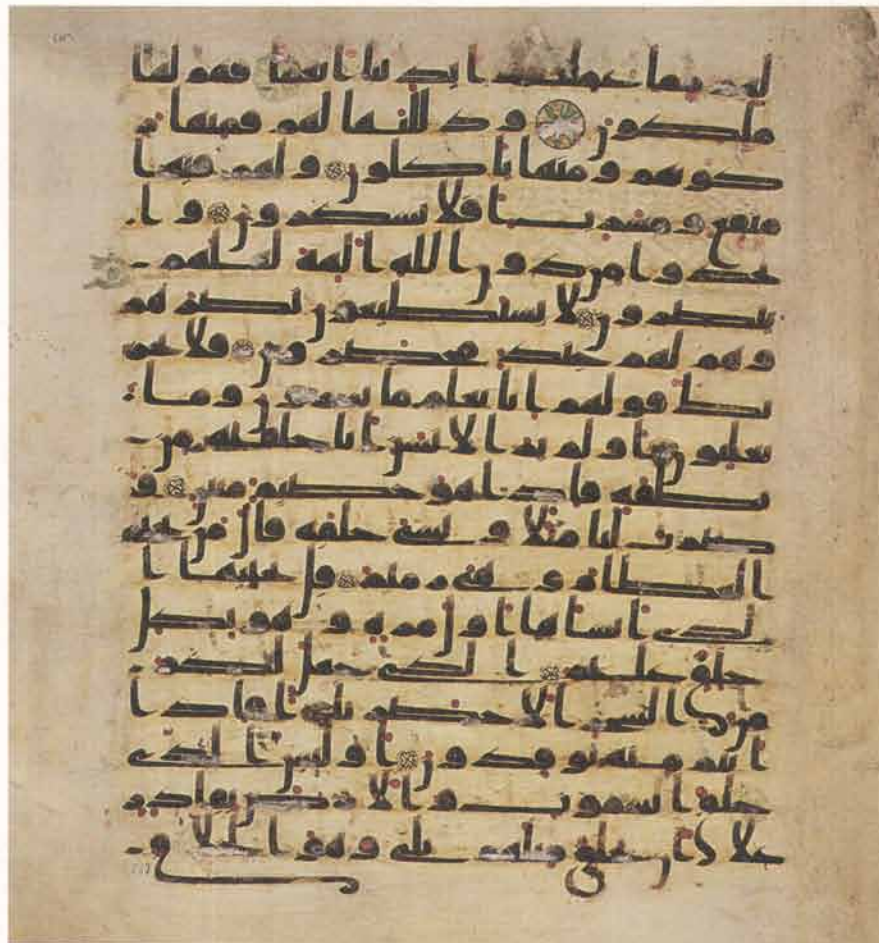 لهم مما عملت ايدينا انعما فهم لها
ملكون وذللنها لهم فمنها ر
كوبهم ومنها ياكلون ولهم فيها
منفع ومشرب افلا يشكرون وا
تخذوا من دون الله الهة لعلهم
ينصرون لا يستطيعون نصرهم
وهم لهم جند محضرون فلا يحز
نك قولهم انا نعلم ما يسرون وما
يعلنون اولم ير الانسن انا خلقنه من
نطفة فاذا هو خصيم مبين و
ضرب لنا مثلا ونسي خلقه قال من يحي
العظام وهي رميم قل يحييها ا
لذي انشاها اول مرة وهو بكل
خلق عليم الذي جعل لكم
من الشجر الاخضر نارا فاذا
انتم منه توقدون اوليس الذي
خلق السموت والارض بقادر
على ان يخلق مثلهم بلى وهو الخلق